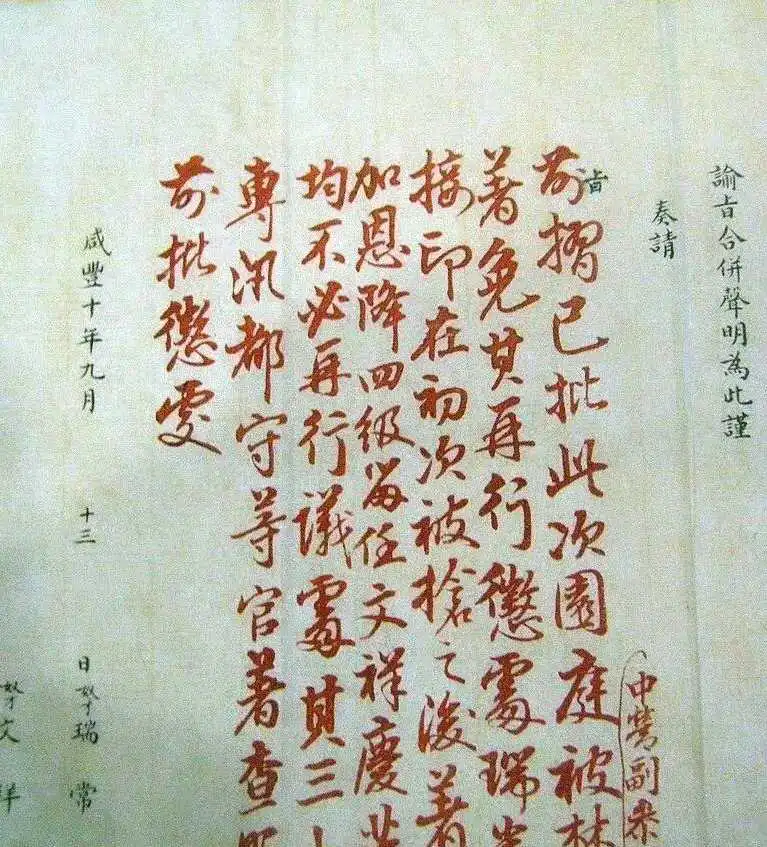 諭旨合併聲明為此謹
奏請
旨
中營副叅
前摺已批此次園庭被
著免其再行懲處瑞
接印在初次被搶之後著
加恩降四級留任文祥慶
均不必再行議處其三
專汛都守等官著查
前批懲處
咸豐十年九月 十三 日奴才瑞常
奴才文祥